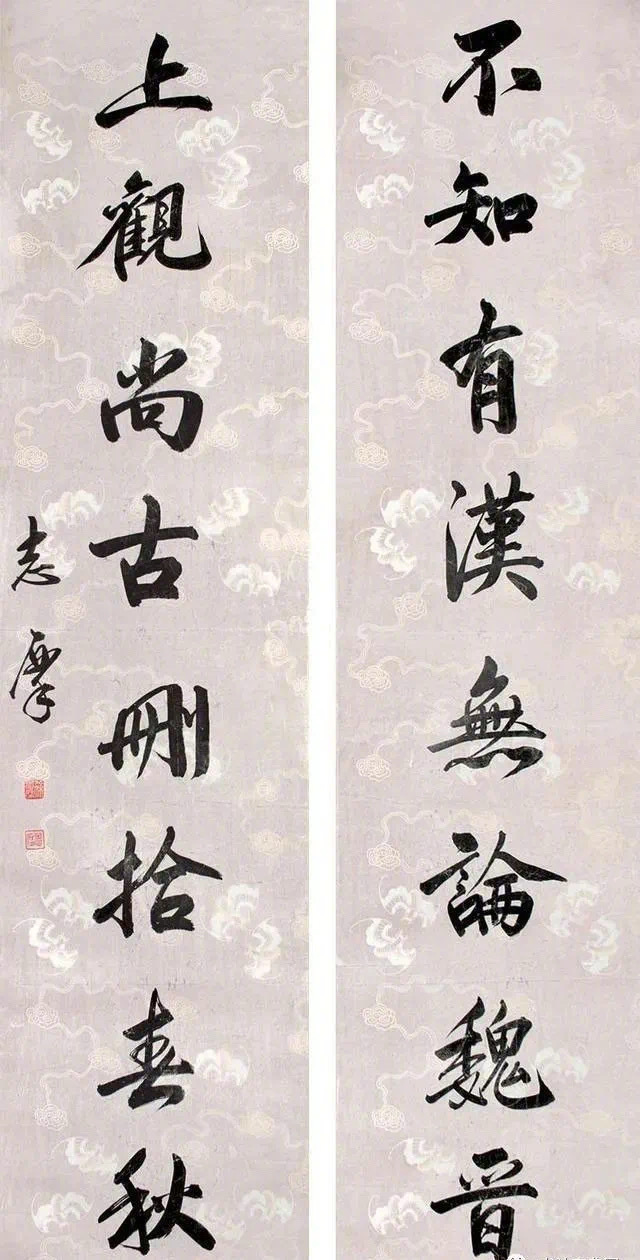 不知有漢無論魏晉
上觀尚古刪拾春秋
志